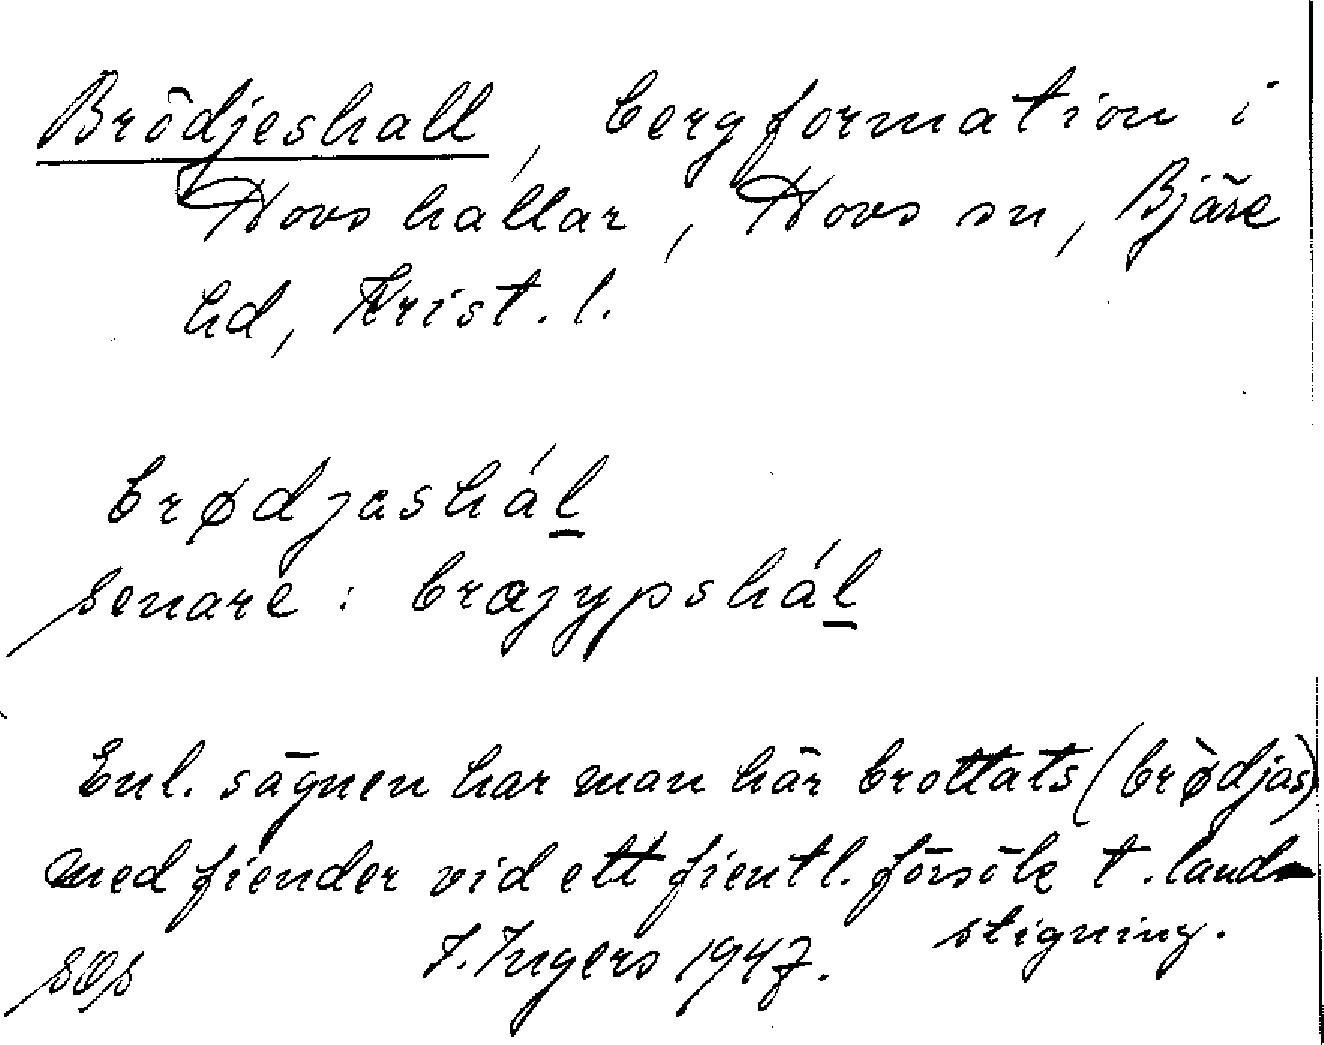 Brödjeshall, bergformation i
Hovs hallar, Hovs sn, Bjäre
hd, Krist. l.
brødjashál
senare: brajypshál
Enl. sägnen har man här brottats (brødjàs)
med fiender vid ett fientl. försök t. land-
stigning.
SOS I. Ingers 1947.